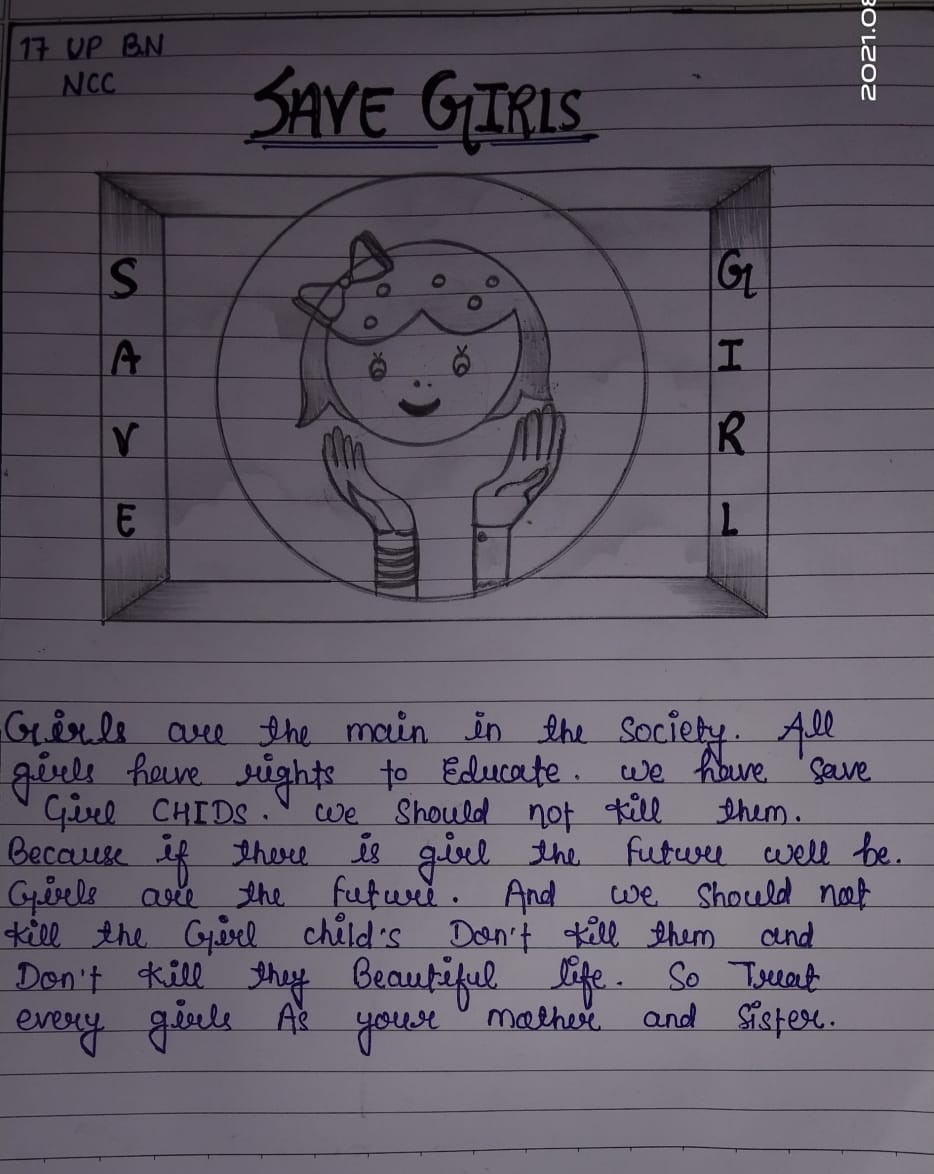 17 UP BN
NCC
2021.08
SAVE GIRLS
S
A
V
E
G
I
R
L
Girls are the main in the society. All
girls have rights to Educate. we have save
Girl CHIDS. we should not kill them.
Because if there is girl the future well be.
Girls are the future. And we should not
kill the Girl child's Don't kill them and
Don't kill they Beautiful life. So Treat
every girls As your mother and sister.